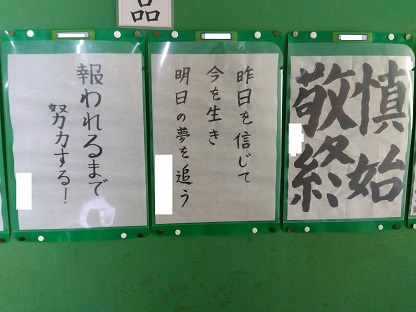 品
慎始
敬終
昨日を信じて
今を生き
明日の夢を追う
報われるまで
努力する!